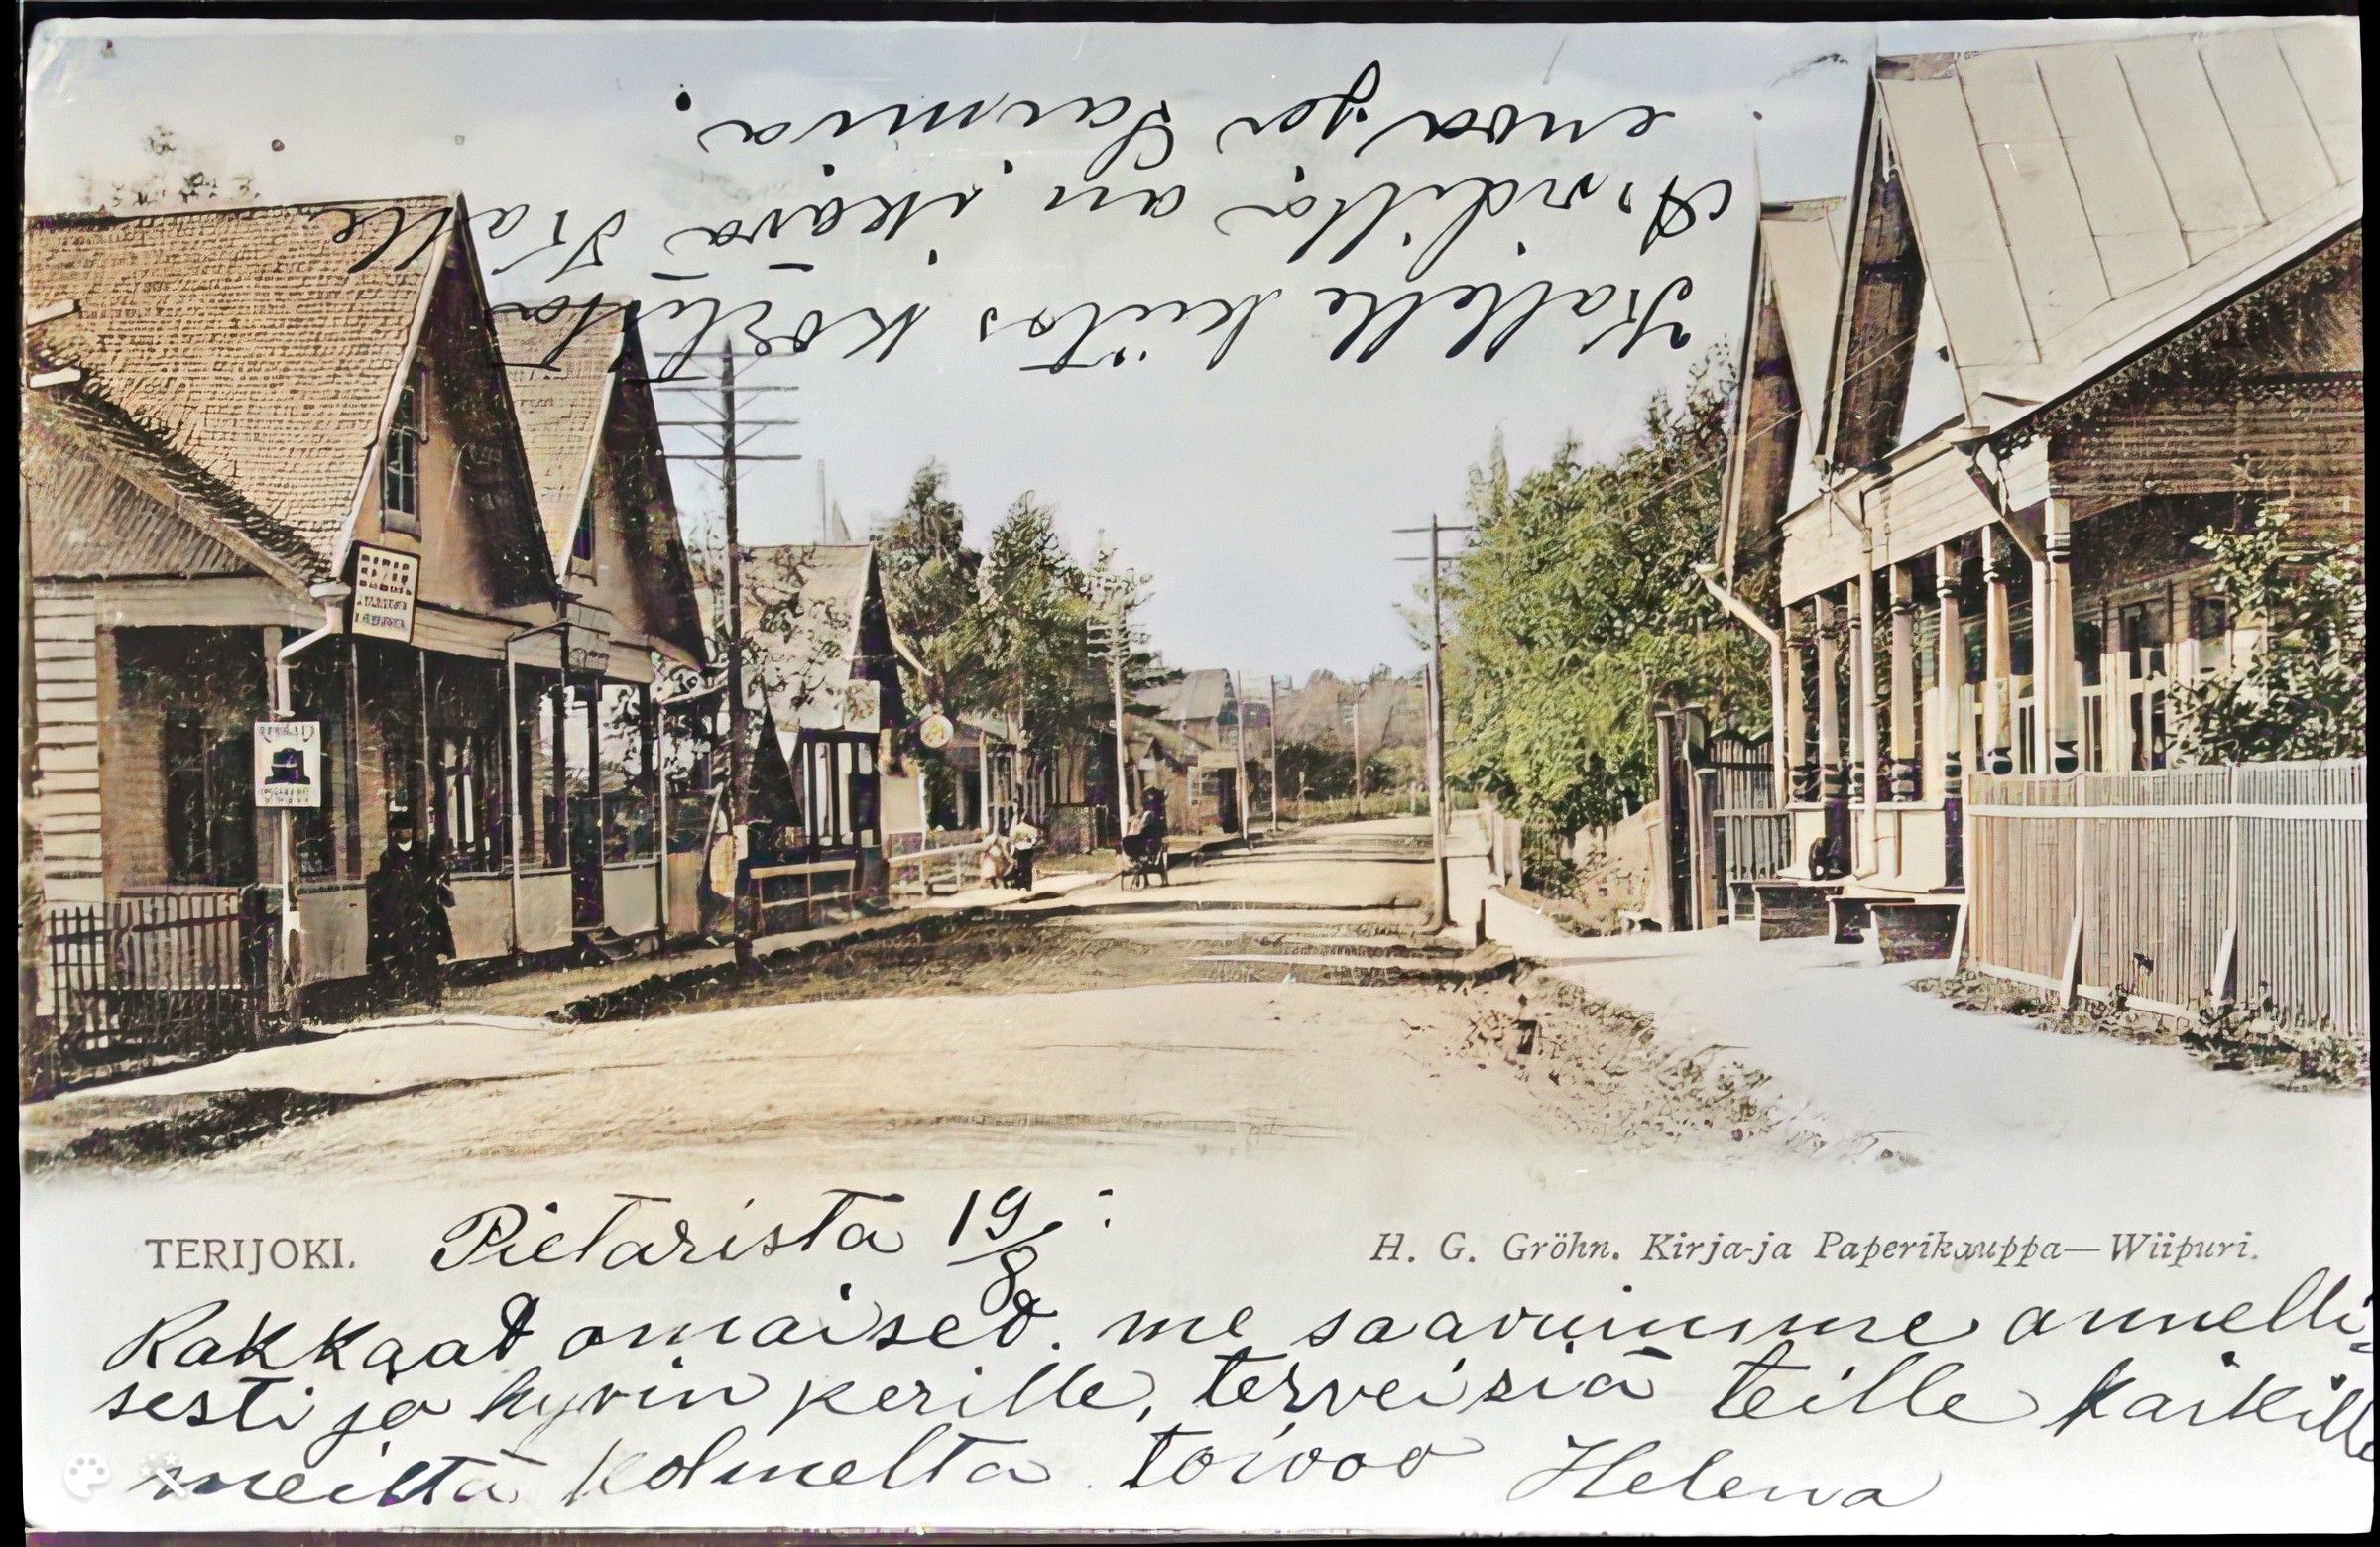 Kallelle kiitos kortista
Arvidilla on ikävä Kalle
enoa ja Saimia.
TERIJOKI.
Pietarista 19/8:
H. G. Gröhn. Kirja-ja Paperikauppa—Wiipuri.
Rakkaat omaiset. me saavuimme onnelli-
sesti ja hyvin perille, terveisiä teille kaikille
meiltä kolmelta. toivoo Helena